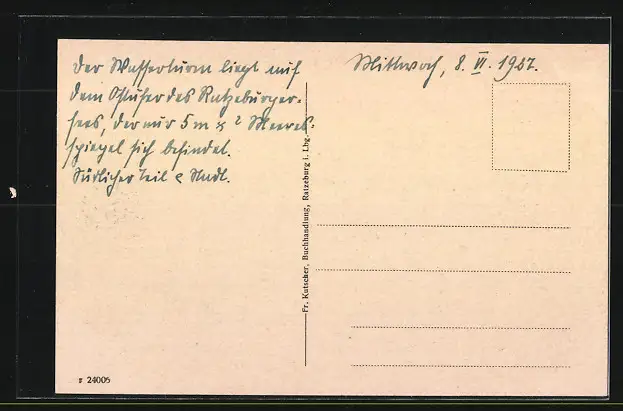 Der Wasserturm liegt auf
dem Ostufer des Ratzeburger-
sees, der nur 5 m ü Meeres-
spiegel sich befindet.
Südlicher Teil
Mittwoch, 8. VI. 1927.
Fr. Kutscher, Buchhandlung, Ratzeburg i. Lbg.
24005